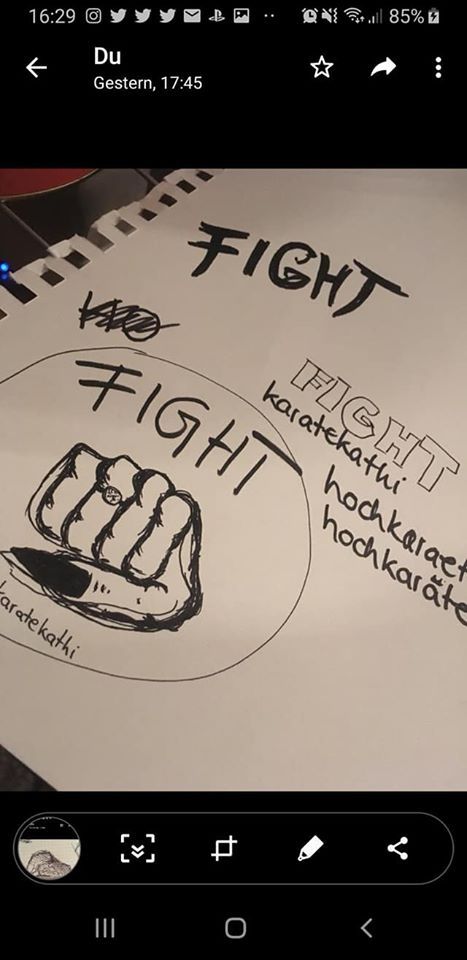 16:29
85%
Du
Gestern, 17:45
FIGHT
FIGHT
FIGHT
karatekathi
hochkaraet
hochkaräte
karatekathi